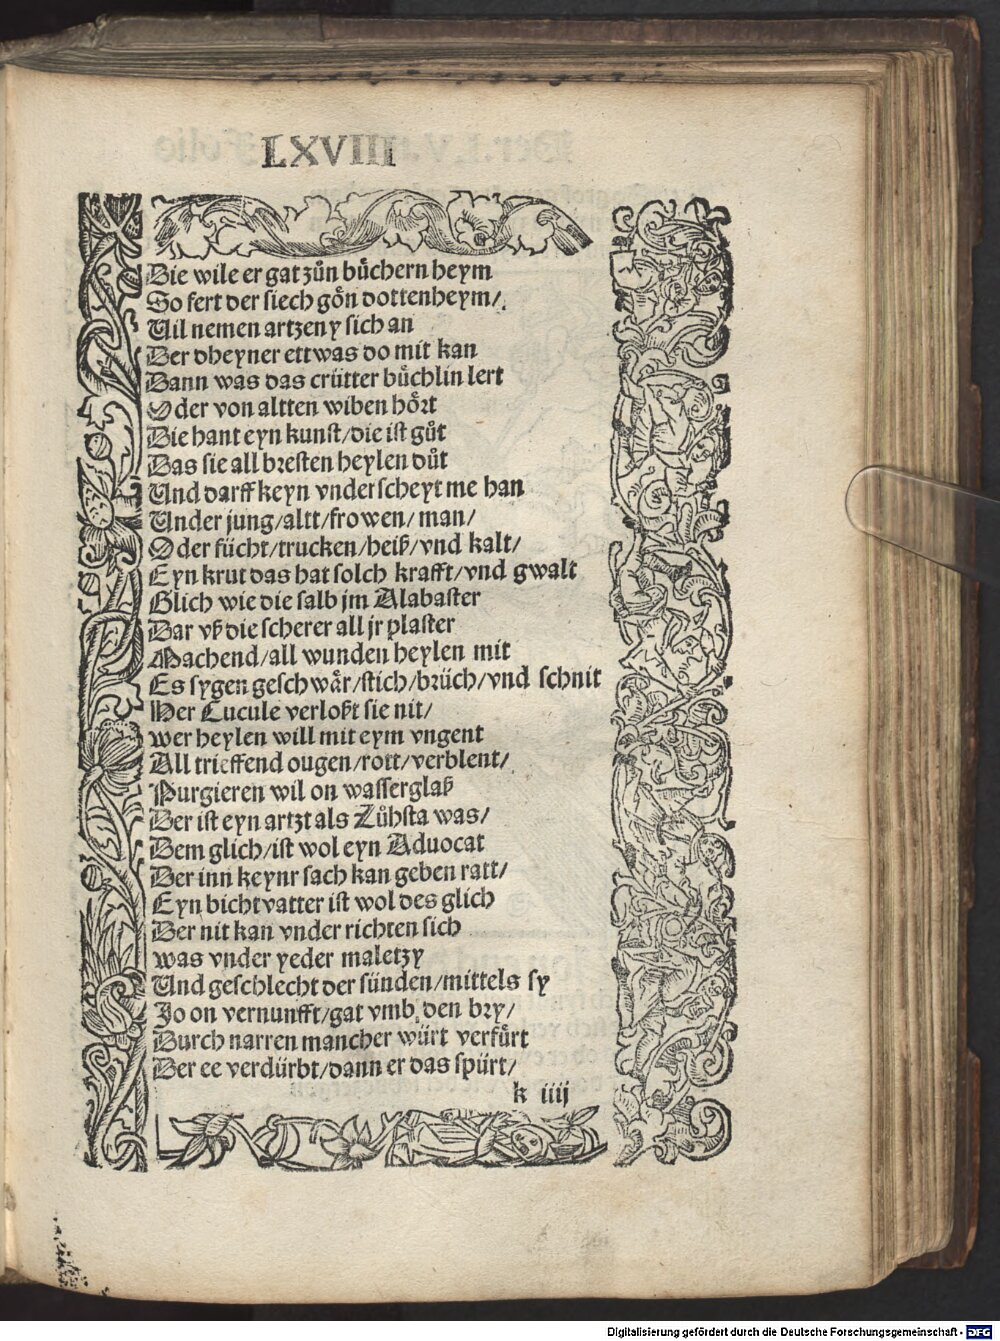 LXVIII
Die wile er gat zůn bůchern heym
So fert der siech gön dottenheym/
Vil nemen artzeny sich an
Der dheyner ettwas do mit kan
Dann was das crütter bůchlin lert
Oder von altten wiben hört
Die hant eyn kunst/die ist gůt
Das sie all bresten heylen důt
Vnd darff keyn vnderscheyt me han
Vnder jung/altt/frowen/man/
Oder fücht/trucken/heiß/vnd kalt/
Eyn krut das hat solch krafft/vnd gwalt
Glich wie die salb jm Alabaster
Dar vß die scherer all jr plaster
Machend/all wunden heylen mit
Es sygen geschwär/stich/brüch/vnd schnit
Her Cucule verloßt sie nit/
wer heylen will mit eym vngent
All trieffend ougen/rott/verblent/
Purgieren wil on wasserglaß
Der ist eyn artzt als Zůhsta was/
Dem glich/ist wol eyn Aduocat
Der inn keynr sach kan geben ratt/
Eyn bichtvatter ist wol des glich
Der nit kan vnder richten sich
was vnder yeder maletzy
Vnd geschlecht der sünden/mittels sy
Jo on vernunfft/gat vmb den bry/
Durch narren mancher würt verfürt
Der ee verdürbt/dann er das spürt/
k iiij
Digitalisierung gefördert durch die Deutsche Forschungsgemeinschaft - DFG